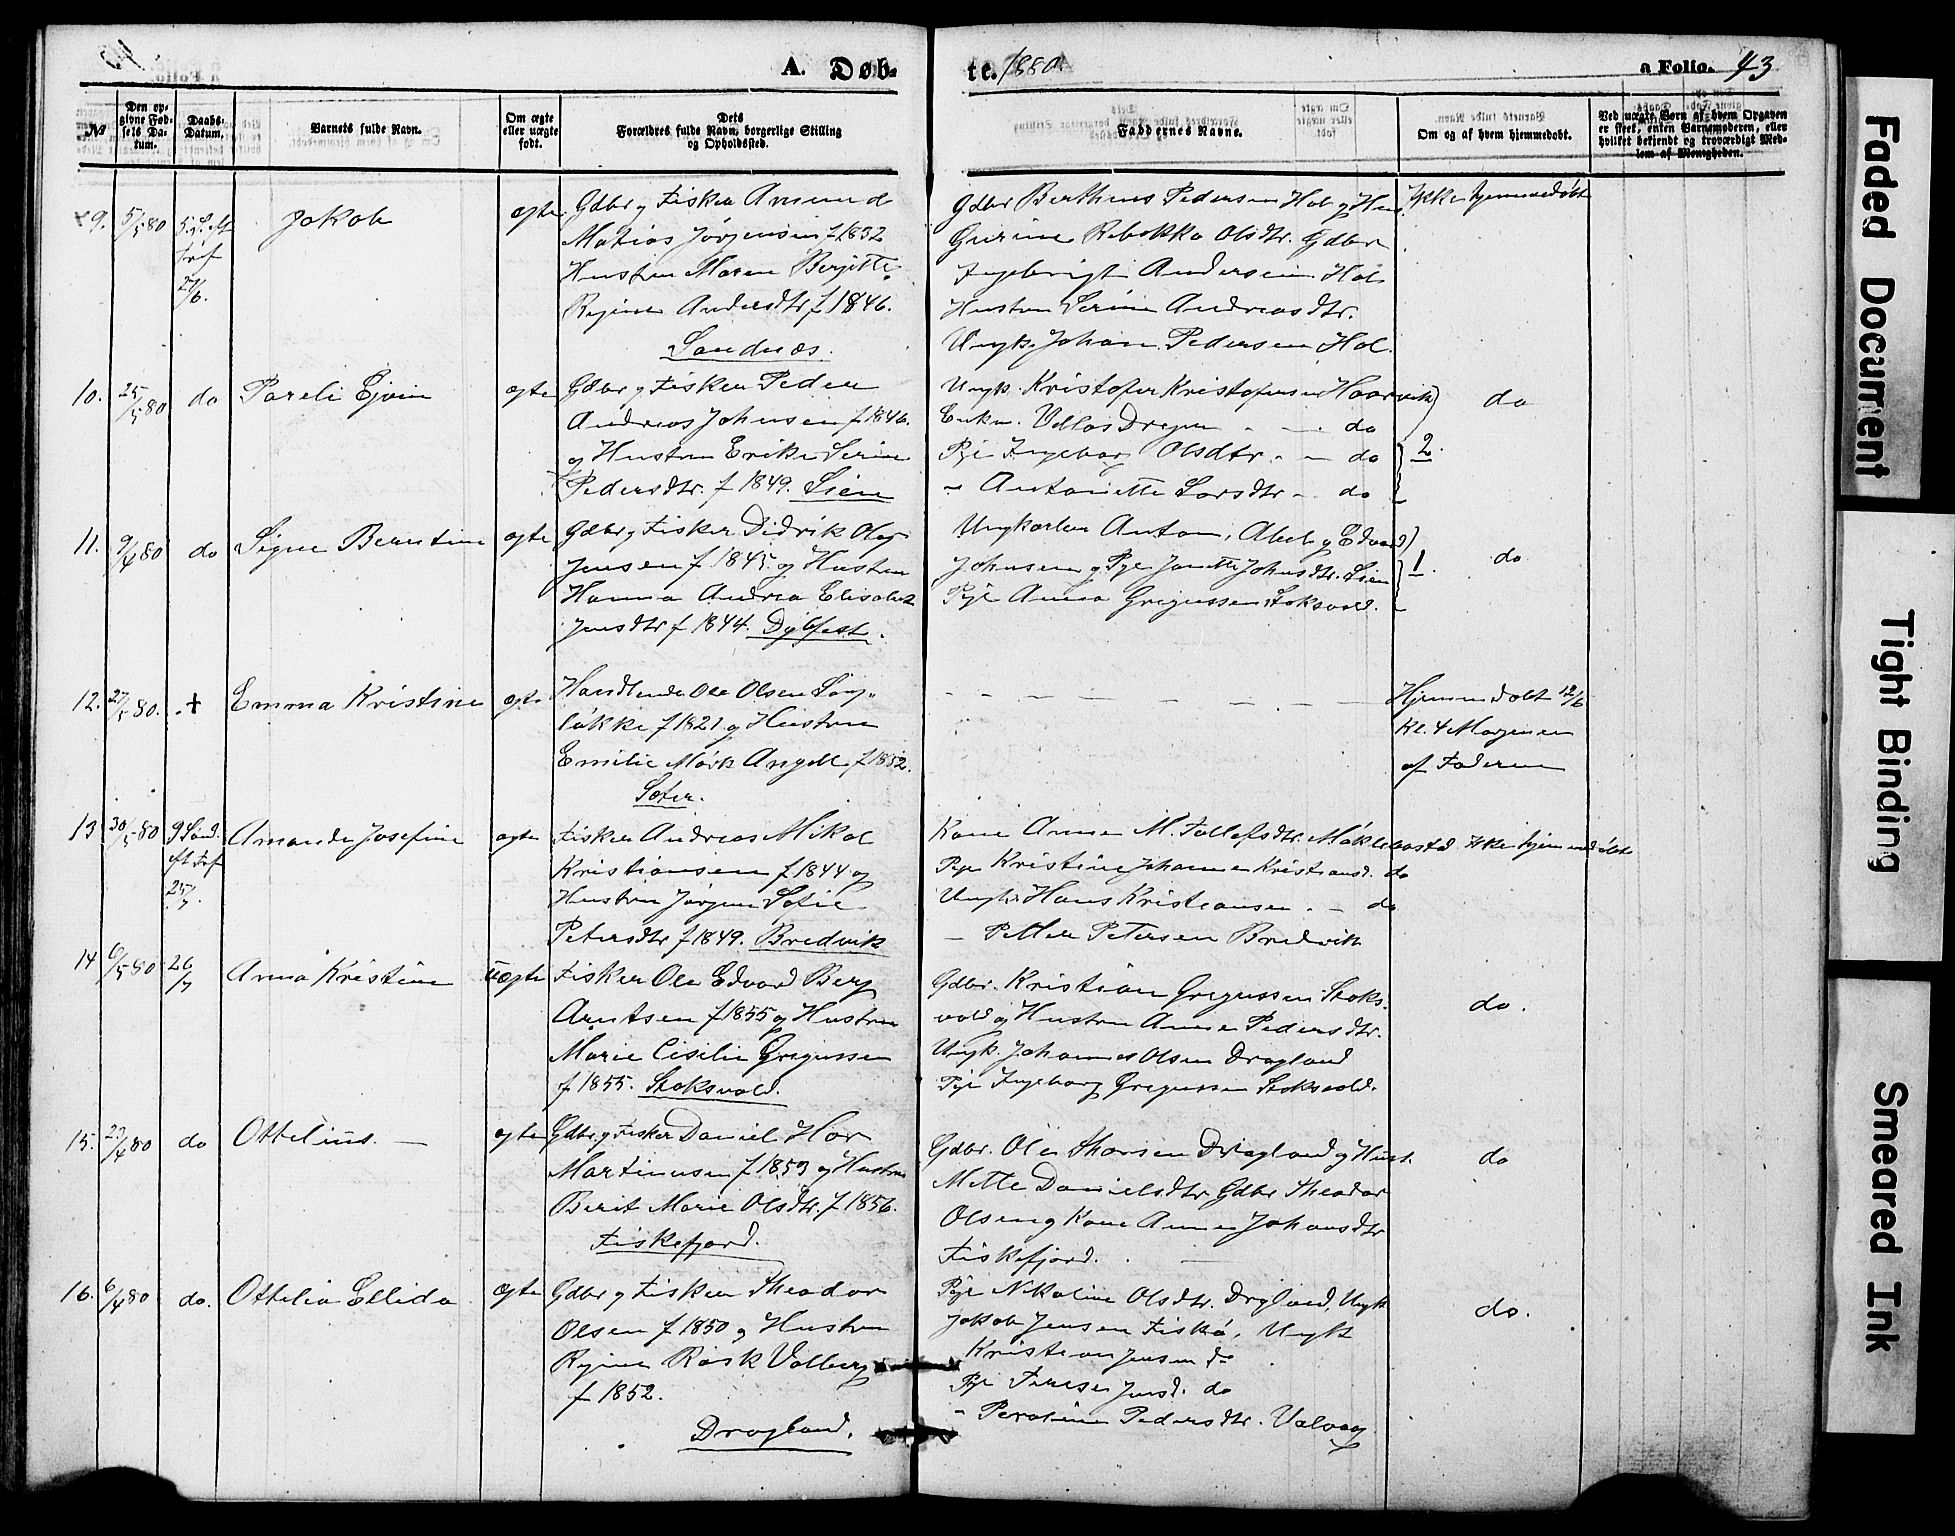 A. Døb-
te. 1880.
a Folio. 43
№
Den op-
givne Fød-
sels Da-
tum.
Daabs-
Datum.
Barnets fulde Navn.
Om ægte
eller uægte
født.
Dets
Forældres fulde Navn, borgerlige Stilling
og Opholdssted.
Faddernes Navne.
Om og af hvem hjemmedøbt.
Ved uægte Børn af hvem Opgaven
er skeet, enten Barnemoderen, eller
hvilket bekjendt og troværdigt Med-
lem af Menigheden.
9.
5/5 80
5. S. eft
Tref
27/6.
Jakob
egte
Gdbr og Fisker Amund
Matias Jørgensen f 1832
Hustru Maren Bergitte
Regine Andersdtr f 1846.
Sandnæs.
Gdbr Bertheus Pedersen Hol og Hus.
Gurine Rebekka Olsdtr. Gdbr
Ingebrigt Andersen Hol
Hustru Serine Andreasdtr.
Ungk. Johan Pedersen Hol.
Ikke hjemmedøbt
10.
25/5 80
do
Pareli Ejvin
egte
Gdbr og Fisker Peder
Andreas Johnsen f 1846.
og Hustru Erikke Serine
Pedersdtr. f 1849. Lien
Ungk. Kristofer Kristofersen Haarvik
Enkm. Drejer - - do
Pige Ingebor Olsdtr. - - do
- Antonette Larsdtr - do
2.
do
11.
9/4 80
do
Signe Berntine
egte
Gdbr og Fisker Didrik Olay
Jensen f 1845 og Hustru
Hanna Andrea Elisabet
Jensdtr f 1844. Dybfest.
Ungkarlene Anton, Abel og Edvard
Johnsen og Pige Janette Johnsdtr. Lien
Pige Anna Gregussen Stoksvold.
1.
do
12.
27/5 80.
+
Emma Kristine
egte
Handlende Ole Olsen Løv-
løkke f 1821 og Hustru
Emilie Mørk Angell f 1852.
Søter.
Hjemmedøbt 12/6
Kl. 4 Morgenen
af Faderen
13
30/5 80
9 Sønd.
eft Tref
25/7.
Amanda Josefine
egte
Fisker Andreas Mikal
Kristiansen f 1844 og
Hustru Jørgine Sofie
Petersdtr f 1849. Bredvik
Kone Anne M. Tollefsdtr. Møklebostad
Pige Kristine Johanne Kristiansd. do
Ungk. Hans Kristiansen. - do
- Petter Petersen Bredvik
Ikke hjemmedøbt
14
6/5 80
26/7
Anna Kristine
uegte
Fisker Ole Edvard Berg
Arntsen f 1855 og Hustru
Marie Cisilie Gregussen
f 1855. Stoksvold.
Gdbr. Kristian Gregussen Stoks-
vold og Hustru Anne Pedersdtr.
Ungk. Johannes Olsen Dragland
Pige Ingeborg Gregussen Stoksvold.
do.
15.
29/4 80
do
Ottelius. —
egte
Gdbr. og Fisker Daniel Hov
Martinusen f 1853 og Hustru
Berit Marie Olsdtr. f 1856.
Fiskefjord.
Gdbr. Ole Thorsen Dragland og Hust.
Mette Danielsdtr Gdbr Theodor
Olsen og Kone Anne Johansdtr
Fiskefjord.
do
16.
6/4 80
do.
Ottelia Ellida
Egte
Gdbr og Fisker Theodor
Olsen f 1850 og Hustru
Regine Røsk Valberg
f 1852.
Dragland.
Pige Nikoline Olsdtr. Dragland, Ungk
Jakob Jensen Fiskø, Ungk
Kristian Jensen do
Pige Terese Jensd. do
- Peroline Pedersdtr. Valvaag
do.
Faded Document
Tight Binding
Smeared Ink